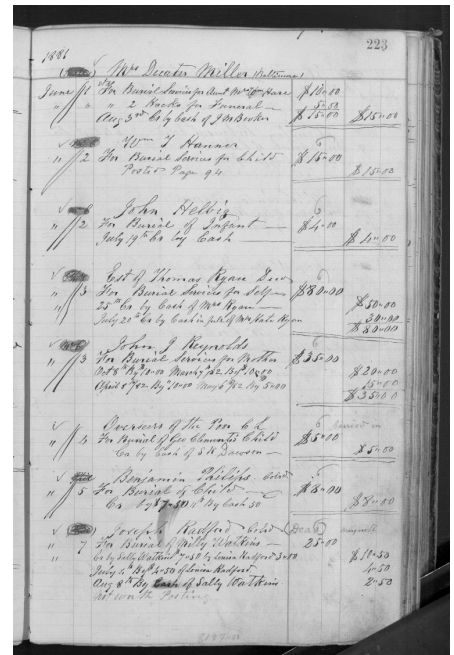 223
1881
Mrs Decater Miller (Baltimore)
June 1 For Burial Services for Aunt Mrs Hare $10.00
" " 2 Hacks for Funeral — 5.00
Aug 3rd Cr By Cash of J M Booker $15.00 $15.00
Wm T Hanner
" 2 For Burial Services for Child $15.00
Posted Page 94 $15.00
John Helbig
" 2 For Burial of Infant — $4.00
" July 19th Cr by Cash — $4.00
Est of Thomas Ryan
" 3 For Burial Services for Self — $80.00
25th Cr by Cash of Mrs Ryan — $50.00
July 20th Cr by Cash in full of Mrs Kate Ryan 30.00
$80.00
John J Reynolds
" 3 For Burial Services for Mother $35.00
Oct 8th By 10.00 March 9th 82 By 10.00 $20.00
April 8th 82 By 10.00 May 6th 82 By 5.00 15.00
$35.00
Overseers of the Poor
" 4 For Burial of Geo Child $5.00 carried in
Cr by Cash of S R Dawson — $5.00
Benjamin Philips Cold
" 5 For Burial of Child — $8.00
Cr By $7.50 By Cash 50 $8.00
Joseph Radford — Cold (Dead)
" 7 For Burial of Milly Watkins — 25.00
" Cr by Sally Watkins 7.50 by Louisa Radford 3.00 $10.50
July 4th By 4.50 of Louisa Radford 4.50
Aug 8th By Cash of Sally Watkins 2.50
not worth Posting